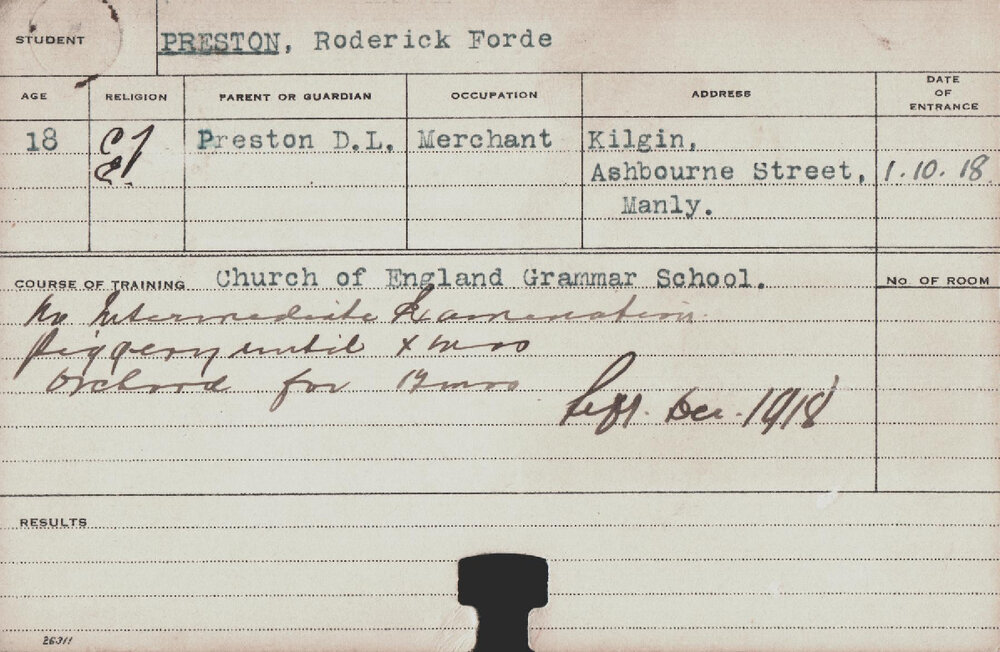 STUDENT PRESTON, Roderick Forde
AGE RELIGION PARENT OR GUARDIAN OCCUPATION ADDRESS DATE OF ENTRANCE
18 C/E. Preston D.L. Merchant Kilgin,
Ashbourne Street, 1.10.18.
Manly.
COURSE OF TRAINING Church of England Grammar School. No. OF ROOM
No Intermediate Examination
Piggery until Xmas
Orchard for 12 mos
Left. Dec. 1918
RESULTS
26311